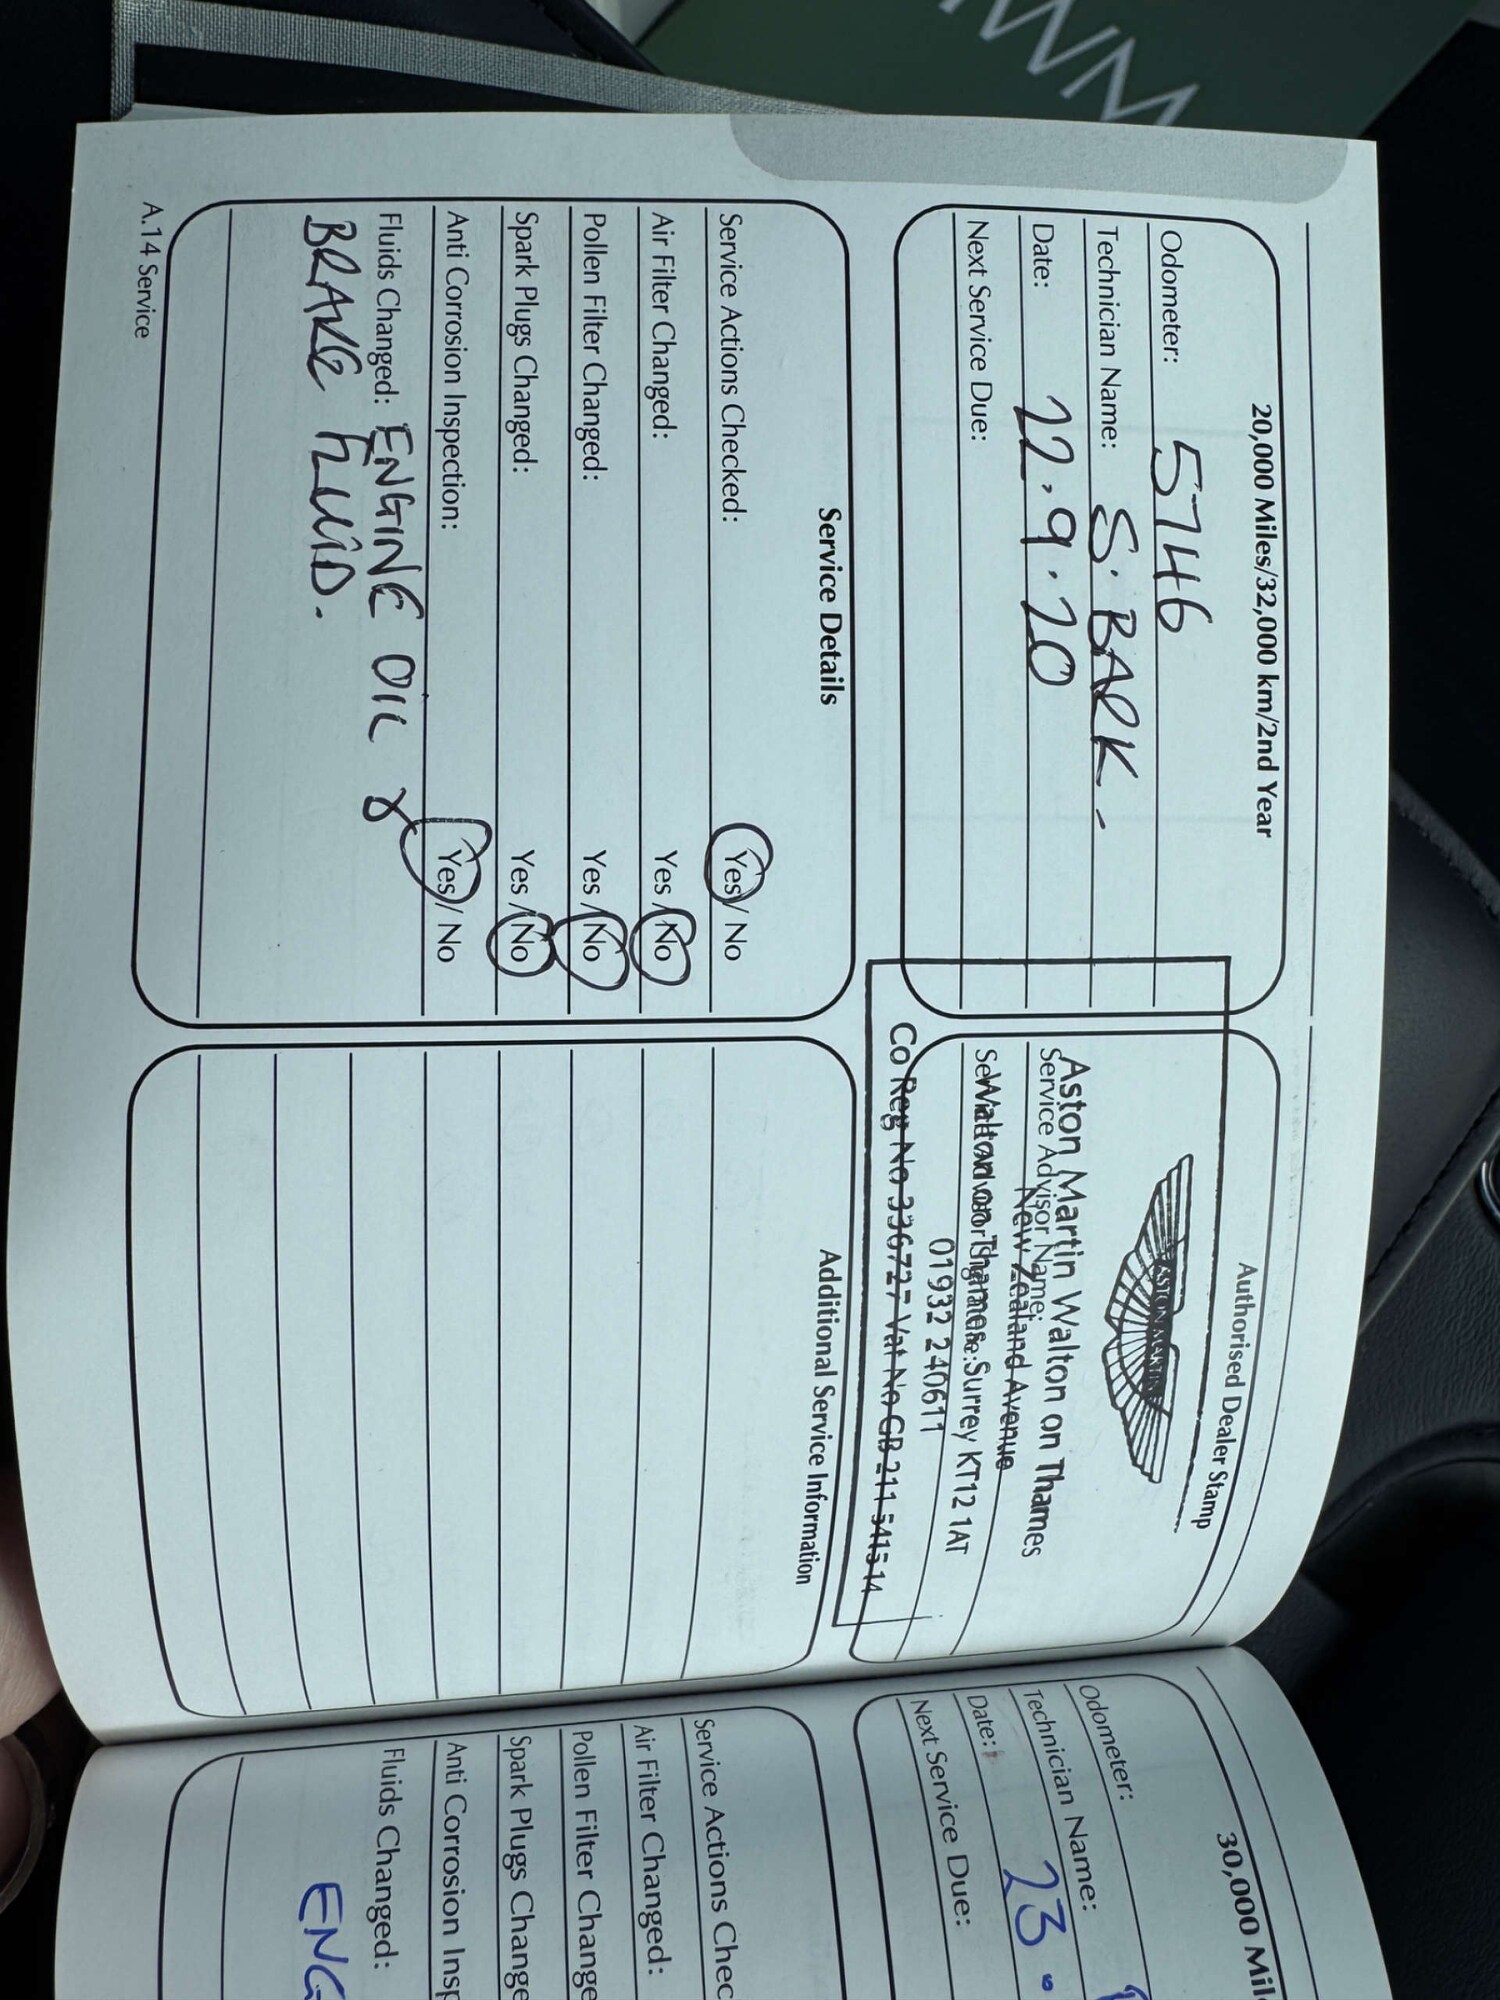 HWM
20,000 Miles/32,000 km/2nd Year
Odometer: 5746
Technician Name: S. BARK.
Date: 22.9.20
Next Service Due:
Authorised Dealer Stamp
ASTON MARTIN
Aston Martin Walton on Thames
Service Advisor Name:
New Zealand Avenue
Walton on Thames Surrey KT12 1AT
01932 240611
Co Reg No 336727 Vat No GB 211 5415 14
Service Details
Service Actions Checked: Yes / No
Air Filter Changed: Yes / No
Pollen Filter Changed: Yes / No
Spark Plugs Changed: Yes / No
Anti Corrosion Inspection: Yes / No
Fluids Changed: ENGINE OIL &
BRAKE FLUID.
Additional Service Information
A.14 Service
30,000 Mil
Odometer:
Technician Name:
Date: 23.
Next Service Due:
Service Actions Chec
Air Filter Changed:
Pollen Filter Change
Spark Plugs Change
Anti Corrosion Insp
Fluids Changed:
ENG